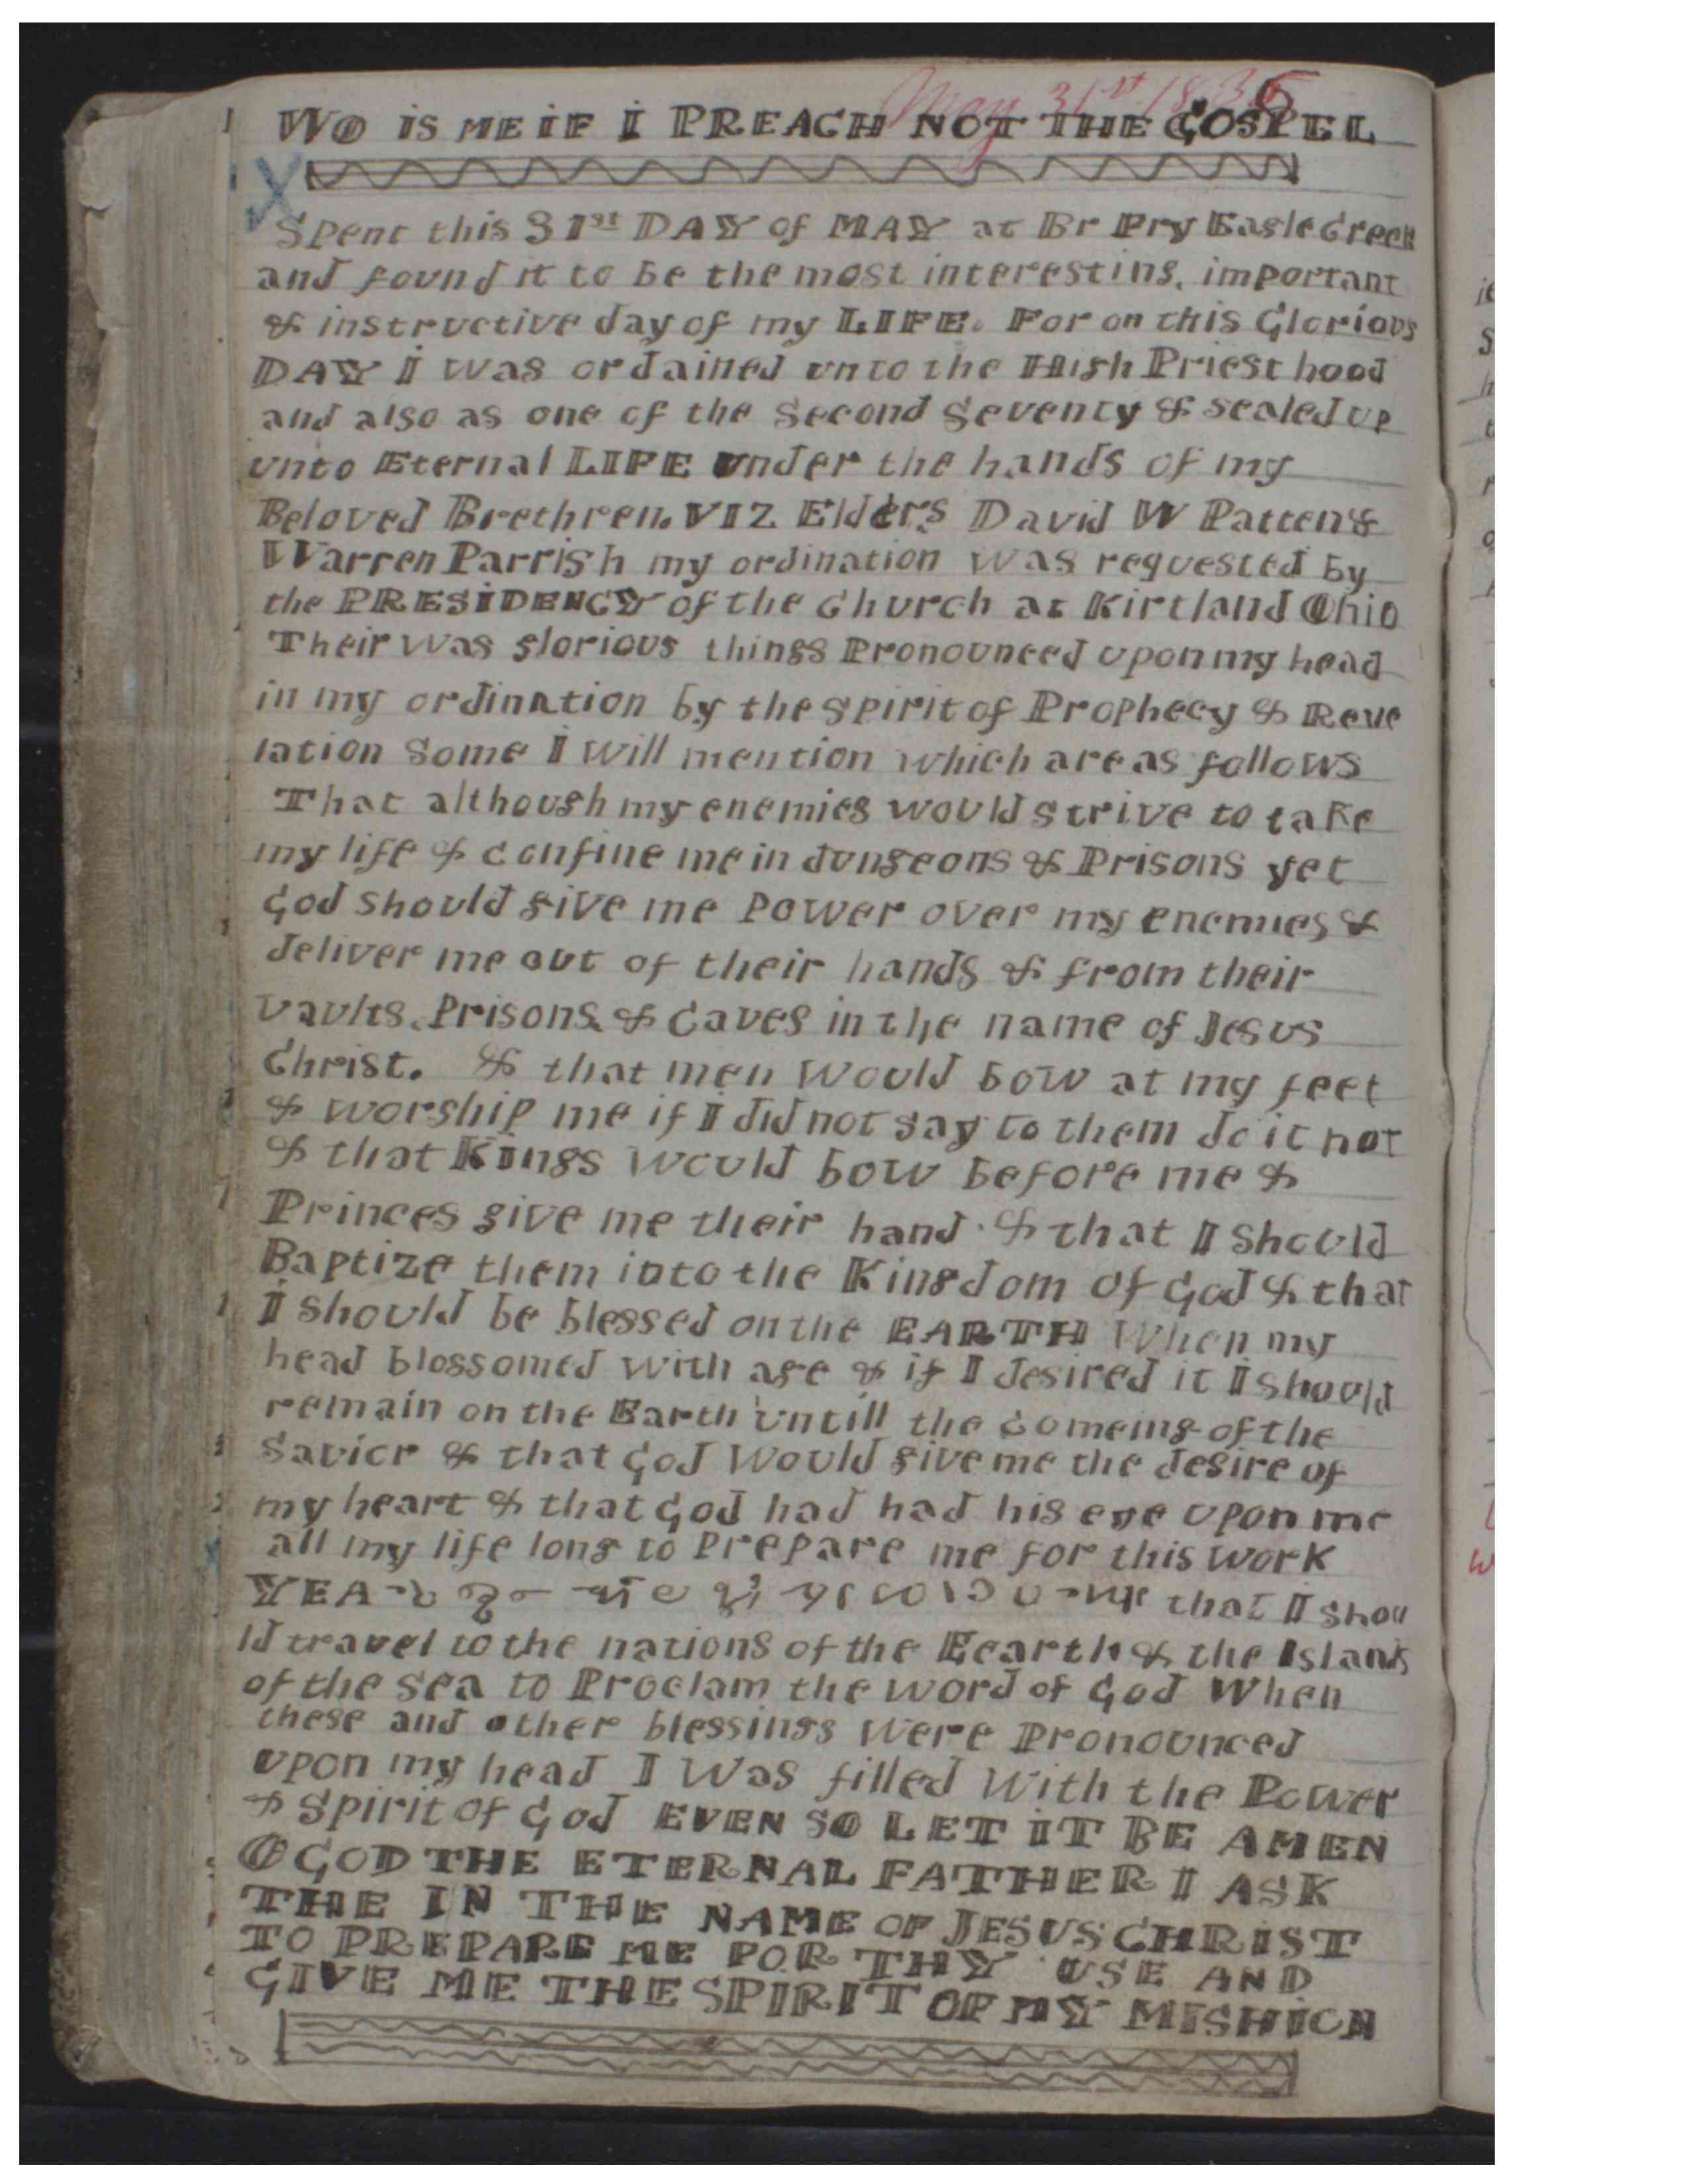 May 31st 1836
WO IS ME IF I PREACH NOT THE GOSPEL
Spent this 31st DAY of MAY at Br Fry Eagle Creek
and found it to be the most interesting, important
& instructive day of my LIFE. For on this Glorious
DAY I was ordained unto the High Priest hood
and also as one of the Second Seventy & sealed up
unto Eternal LIFE under the hands of my
Beloved Brethren. VIZ Elders David W Patten &
Warren Parrish my ordination was requested by
the PRESIDENCY of the Church at Kirtland Ohio
Their was glorious things Pronounced upon my head
in my ordination by the spirit of Prophecy & Reve
lation Some I will mention which are as follows
That although my enemies would strive to take
my life & confine me in dungeons & Prisons yet
God should give me Power over my enemies &
deliver me out of their hands & from their
vaults, Prisons, & Caves in the name of Jesus
Christ. & that men would bow at my feet
& worship me if I did not say to them do it not
& that Kings would bow before me &
Princes give me their hand & that I should
Baptize them into the Kingdom of God & that
I should be blessed on the EARTH When my
head blossomed with age & if I desired it I should
remain on the Earth untill the comeing of the
Savior & that God Would give me the desire of
my heart & that God had had his eye upon me
all my life long to Prepare me for this work
YEA that I shou
ld travel to the nations of the Eearth & the Islands
of the sea to Proclam the word of God When
these and other blessings were Pronounced
upon my head I Was filled With the Power
& Spirit of God EVEN SO LET IT BE AMEN
O GOD THE ETERNAL FATHER I ASK
THE IN THE NAME OF JESUS CHRIST
TO PREPARE ME FOR THY USE AND
GIVE ME THE SPIRIT OF MY MISHION